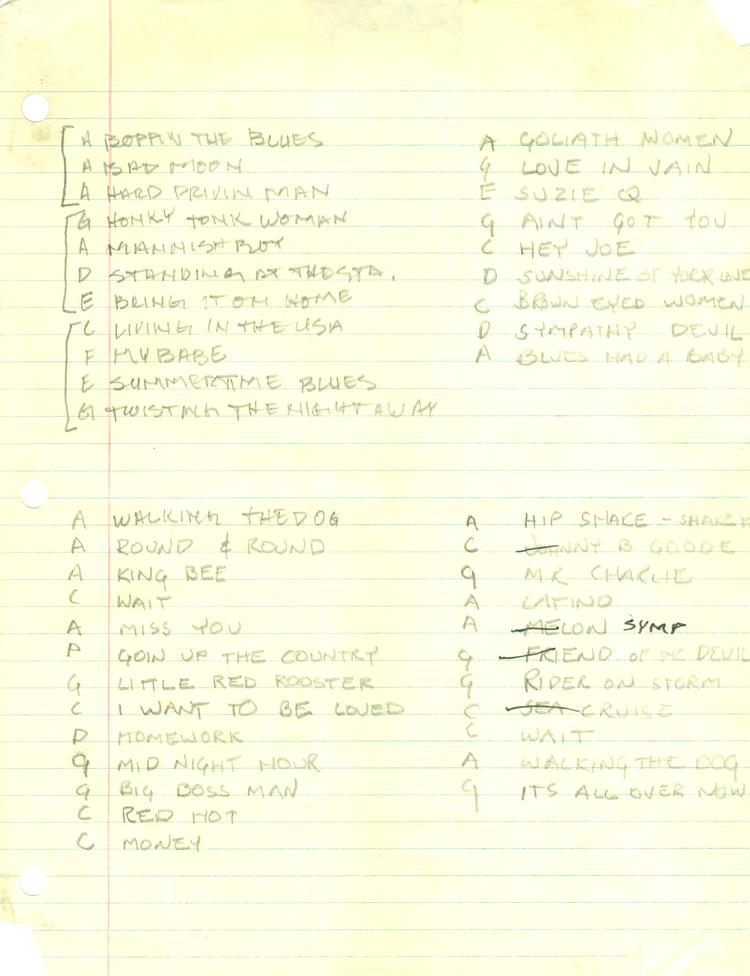 A BOPPIN THE BLUES
A BAD MOON
A HARD DRIVIN MAN
G HONKY TONK WOMAN
A MANNISH BOY
D STANDING AT THE STA.
E BRING IT ON HOME
C LIVING IN THE USA
F MY BABE
E SUMMERTIME BLUES
G TWISTING THE NIGHT AWAY
A GOLIATH WOMEN
G LOVE IN VAIN
E SUZIE Q
G AINT GOT YOU
C HEY JOE
D SUNSHINE OF YOUR LOVE
C BROWN EYED WOMEN
D SYMPATHY DEVIL
A BLUES HAD A BABY
A WALKING THE DOG
A ROUND & ROUND
A KING BEE
C WAIT
A MISS YOU
A GOIN UP THE COUNTRY
G LITTLE RED ROOSTER
C I WANT TO BE LOVED
D HOMEWORK
G MID NIGHT HOUR
G BIG BOSS MAN
C RED HOT
C MONEY
A HIP SHAKE - SHAKE
C JOHNNY B GOODE
G MR CHARLIE
A LATINO
A MELON SYMP
G FRIEND OF THE DEVIL
G RIDER ON STORM
C SEA CRUISE
C WAIT
A WALKING THE DOG
G ITS ALL OVER NOW